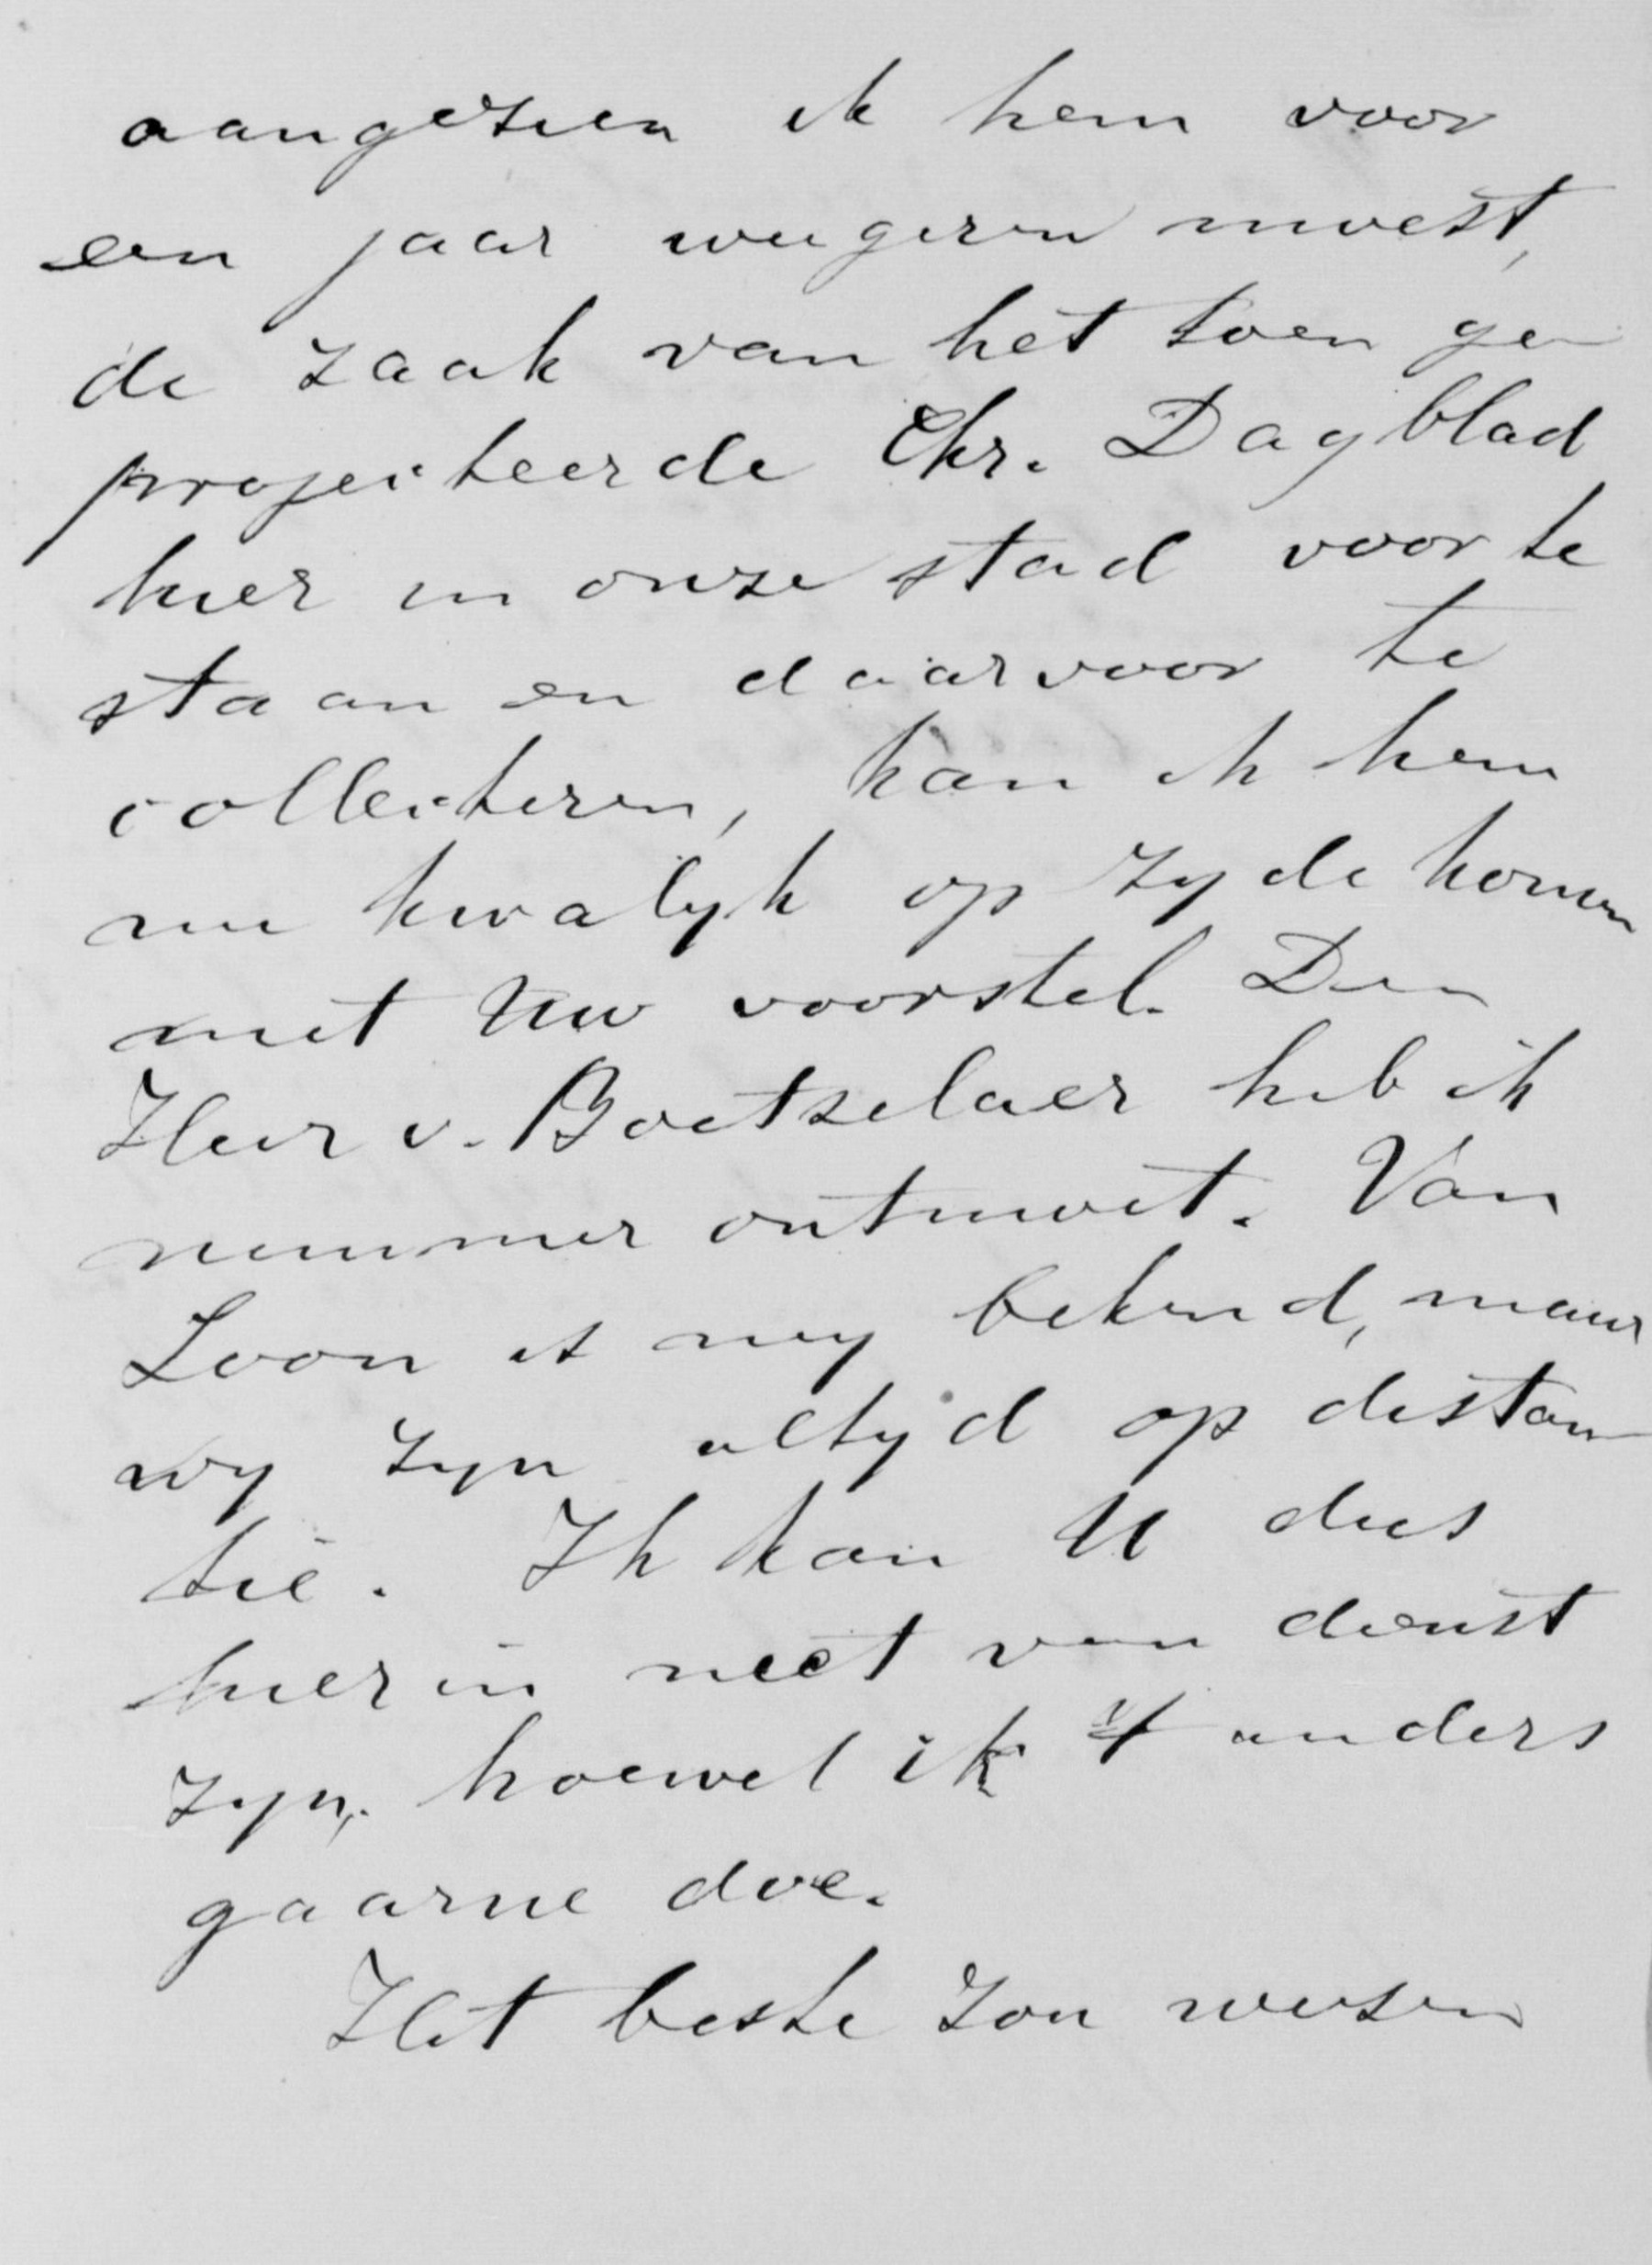 aangezien ik hem voor
een jaar weigeren moest,
de zaak van het toen ge
projecteerde Chr. Dagblad
hier in onze stad voor te
staan en daarvoor te
collecteren, kan ik hem
nu kwalyk op zyde komen
met Uw voorstel. Den
Heer v. Boetzelaer heb ik
nimmer ontmoet. Van
Loon is my bekend, maar
wy zyn altyd op distan
tie. Ik kan U dus
hierin niet van dienst
zyn, hoewel ik 't anders
gaarne doe.
Het beste zou wezen